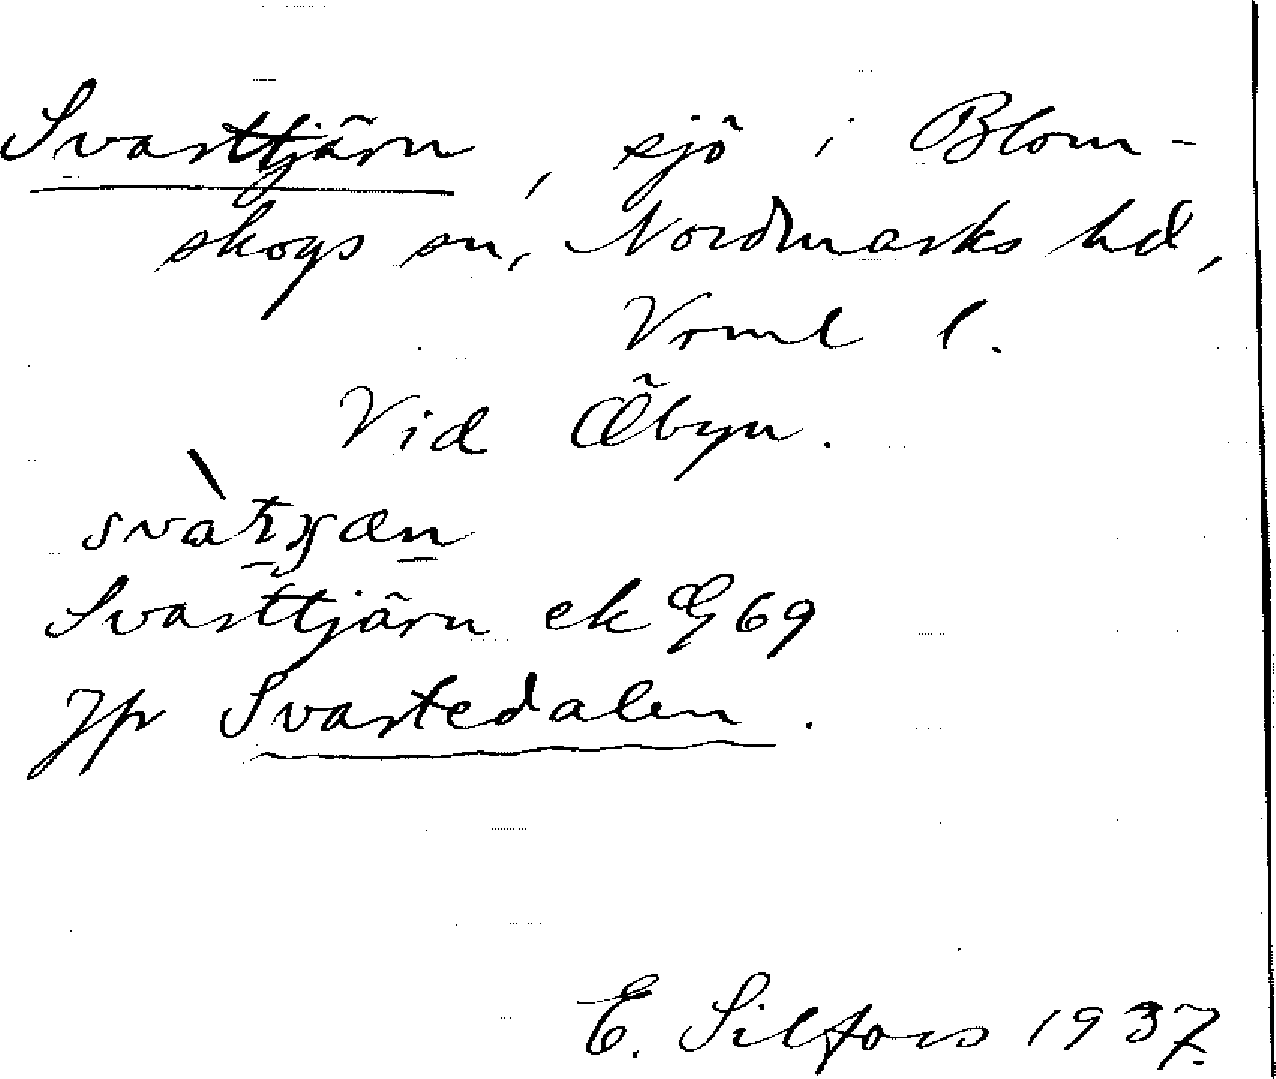 Svarttjärn, sjö i Blom-
skogs sn, Nordmarks hd,
Vrml l.
Vid Åbyn.
Svarttjärn ek G 69
Jfr Svartedalen.
E. Silfors 1937